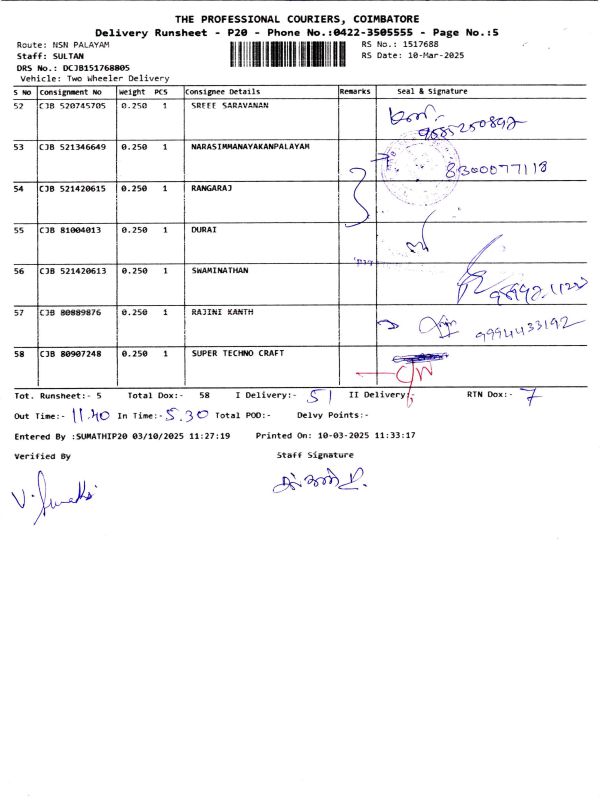 THE PROFESSIONAL COURIERS, COIMBATORE
Delivery Runsheet - P20 - Phone No.:0422-3505555 - Page No.:5
Route: NSN PALAYAM
RS No.: 1517688
Staff: SULTAN
RS Date: 10-Mar-2025
DRS No.: DCJB151768805
Vehicle: Two Wheeler Delivery
S No Consignment No Weight PCS Consignee Details Remarks Seal & Signature
52 CJB 520745705 0.250 1 SREEE SARAVANAN
53 CJB 521346649 0.250 1 NARASIMMANAYAKANPALAYAM 8300077118
54 CJB 521420615 0.250 1 RANGARAJ
55 CJB 81004013 0.250 1 DURAI
56 CJB 521420613 0.250 1 SWAMINATHAN
57 CJB 80889876 0.250 1 RAJINI KANTH 9994433192
58 CJB 80907248 0.250 1 SUPER TECHNO CRAFT
Tot. Runsheet:- 5 Total Dox:- 58 I Delivery:- 51 II Delivery:- RTN Dox:- 7
Out Time:- 11.40 In Time:- 5.30 Total POD:- Delvy Points:-
Entered By :SUMATHIP20 03/10/2025 11:27:19 Printed On: 10-03-2025 11:33:17
Verified By Staff Signature